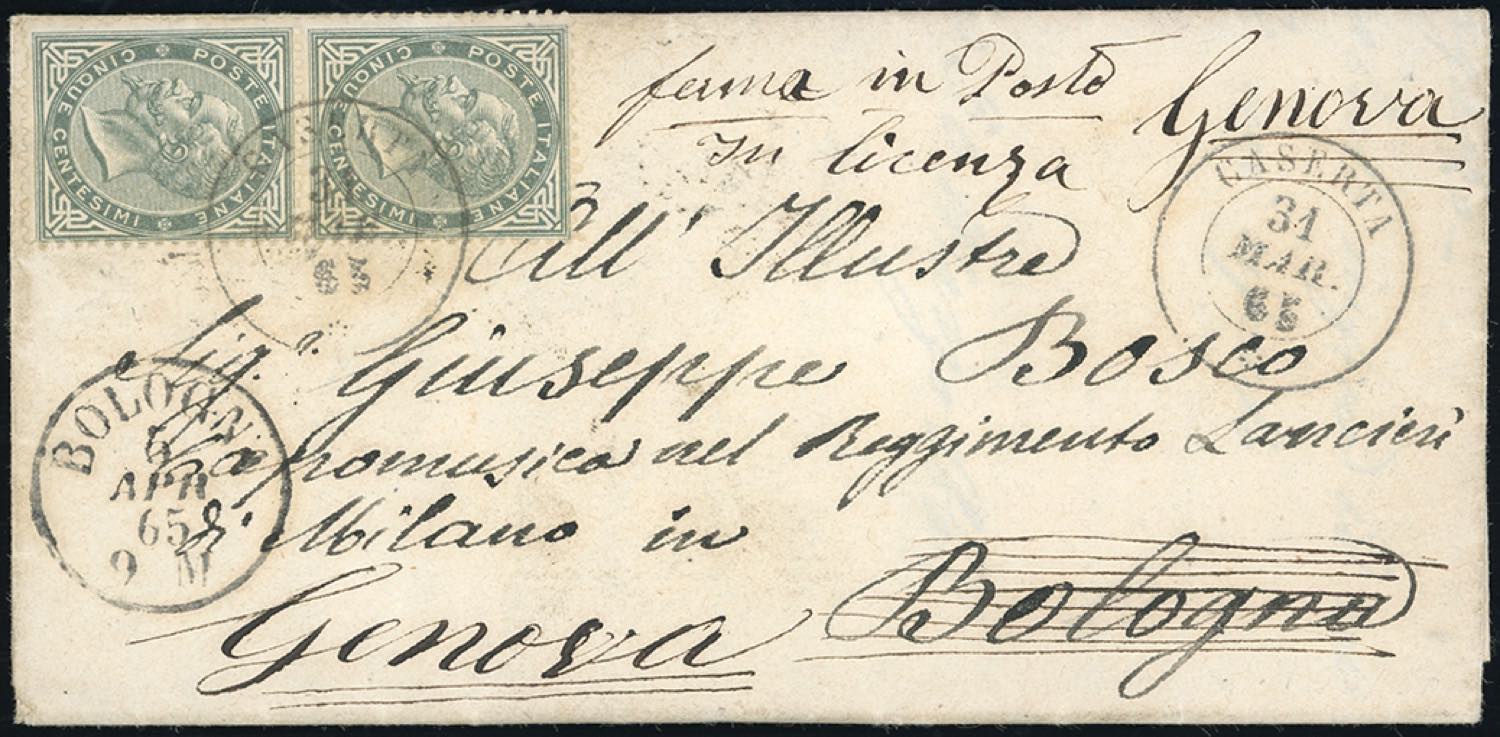 POSTE ITALIANE
CINQUE CENTESIMI
POSTE ITALIANE
CINQUE CENTESIMI
ferma in Posta Genova
In licenza
CASERTA
31
MAR.
65
All' Illustre
Sig.r Giuseppe Bosco
Capomusica nel Reggimento Lancieri
di Milano in
Bologna
Genova
BOLOGNA
APR
65
9 M